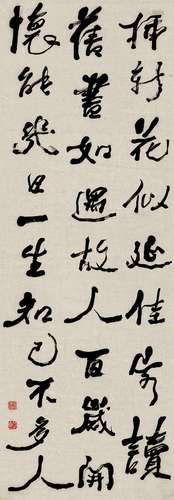 插新花似延佳客讀
舊書如遇故人百歲開
懷能幾日一生知己不多人